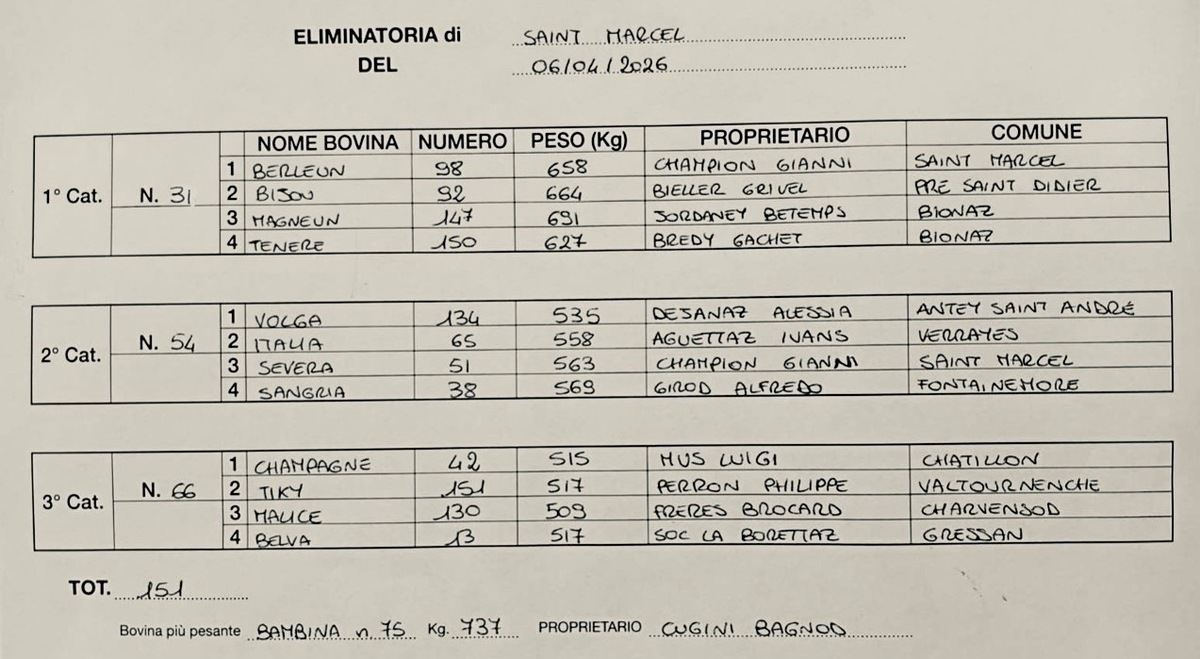 ELIMINATORIA di SAINT MARCEL
DEL 06/04/2026
NOME BOVINA NUMERO PESO (Kg) PROPRIETARIO COMUNE
1° Cat. N. 31
1 BERLEUN 98 658 CHAMPION GIANNI SAINT MARCEL
2 BIJOU 92 664 BIELLER GRIVEL PRE SAINT DIDIER
3 MAGNEUN 147 691 JORDANEY BETEMPS BIONAZ
4 TENERE 150 627 BREDY GACHET BIONAZ
2° Cat. N. 54
1 VOLGA 134 535 DESANAZ ALESSIA ANTEY SAINT ANDRÉ
2 ITALIA 65 558 AGUETTAZ IVANS VERRAYES
3 SEVERA 51 563 CHAMPION GIANNI SAINT MARCEL
4 SANGRIA 38 569 GIROD ALFREDO FONTAINEMORE
3° Cat. N. 66
1 CHAMPAGNE 42 515 MUS LUIGI CHATILLON
2 TIKY 151 517 PERRON PHILIPPE VALTOURNENCHE
3 MALICE 130 509 FRERES BROCARD CHARVENSOD
4 BELVA 13 517 SOC LA BORETTAZ GRESSAN
TOT. 151
Bovina più pesante BAMBINA n. 75 Kg. 737 PROPRIETARIO CUGINI BAGNOD